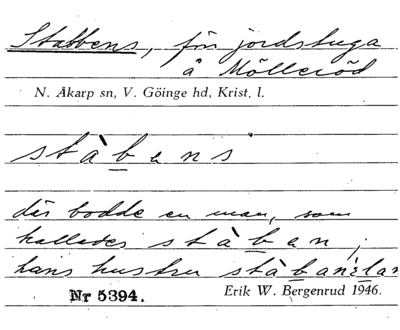 Stabbens, förr jordstuga
å Mölleröd
N. Åkarp sn, V. Göinge hd, Krist. l.
stàbens
där bodde en man, som
kallades stàban,
hans hustru
Nr 5394.
Erik W. Bergenrud 1946.